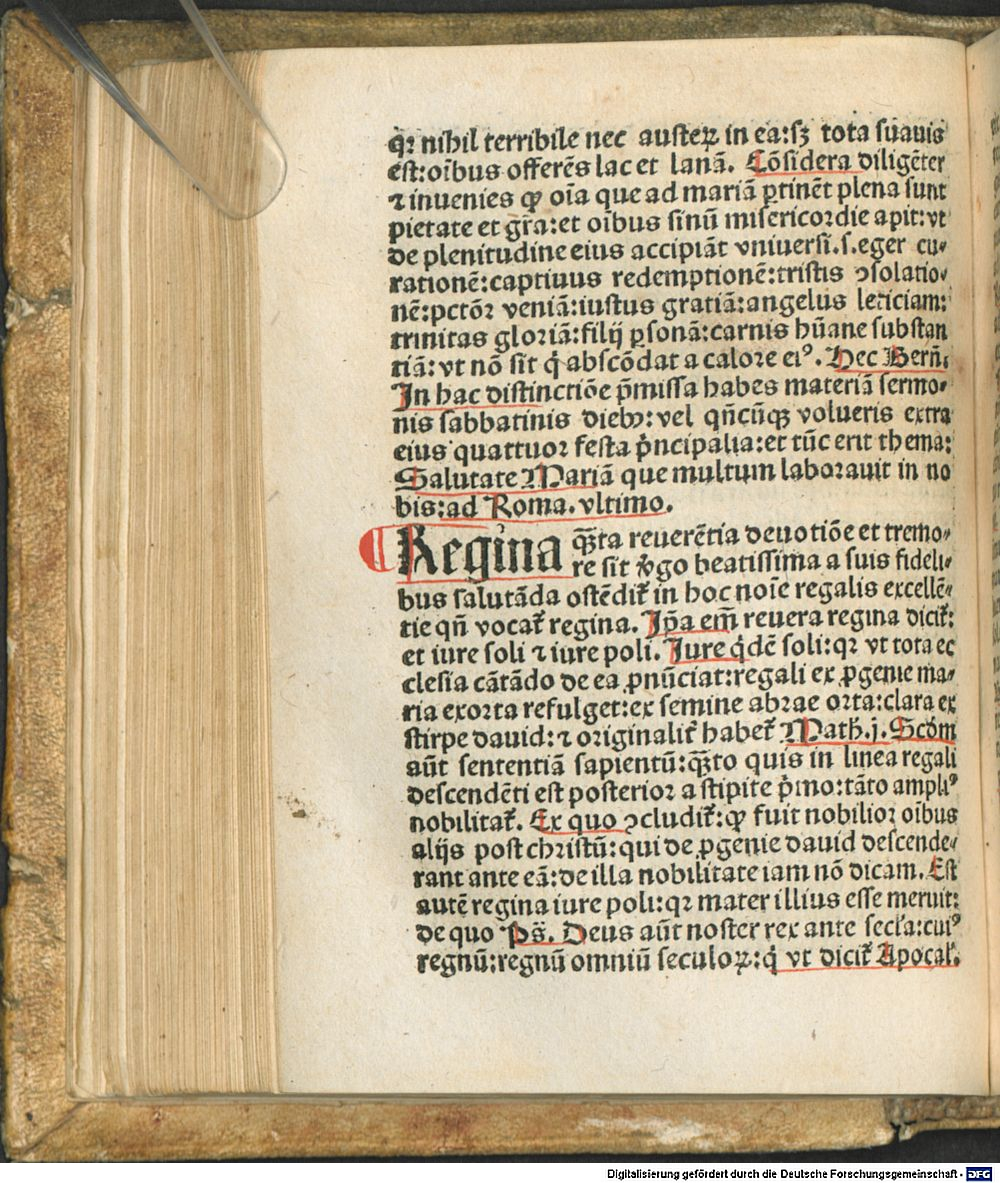 qꝛ nihil terribile nec austeꝝ in ea:sꝫ tota suauis
est:oībus offerēs lac et lanā. Cōsidera diligēter
⁊ inuenies ꝙ oīa que ad mariā ꝑtinēt plena sunt
pietate et gr̄a:et oībus sinū misericordie apit:vt
de plenitudine eius accipiāt vniuersi.s.eger cu⸗
rationē:captiuus redemptionē:tristis ꝯsolatio⸗
nē:pctōr veniā:iustus gratiā:angelus leticiam:
trinitas gloriā:filij ꝑsonā:carnis hūane substan
tiā:vt nō sit q̇ abscōdat a calore eiꝰ. Hec Bern̄.
In hac distinctiōe p̄missa habes materiā sermo⸗
nis sabbatinis diebꝰ:vel qn̄cūqꝫ volueris extra
eius quattuor festa pͥncipalia:et tūc erit thema:
Salutate Mariā que multum laborauit in no
bis:ad Roma. vltimo.
¶ Regina qᷓꝫta reuerētia deuotiōe et tremo⸗
re sit v̇go beatissima a suis fideli⸗
bus salutāda ostēdit᷑ in hoc noīe regalis excellē⸗
tie qn̄ vocat᷑ regina. Ip̄a em̄ reuera regina dicit᷑:
et iure soli ⁊ iure poli. Iure q̇dē soli:qꝛ vt tota ec
clesia cātādo de ea ꝓnūciat:regali ex ꝓgenie ma⸗
ria exorta refulget:ex semine abrae orta:clara ex
stirpe dauid:⁊ originalit᷑ habet᷑ Math.j. Scd̓m
aūt sententiā sapientū:qᷓꝫto quis in linea regali
descendēti est posterior a stipite pͥmo:tāto ampliꝰ
nobilitat᷑. Ex quo ꝯcludit᷑:ꝙ fuit nobilior oībus
alijs post christū:qui de ꝓgenie dauid descende⸗
rant ante eā:de illa nobilitate iam nō dicam. Est
autē regina iure poli:qꝛ mater illius esse meruit:
de quo Ps̄. Deus aūt noster rex ante secl̓a:cuiꝰ
regnū:regnū omniū seculoꝝ:q̇ vt dicit᷑ Apocal̓.
Digitalisierung gefördert durch die Deutsche Forschungsgemeinschaft - DFG